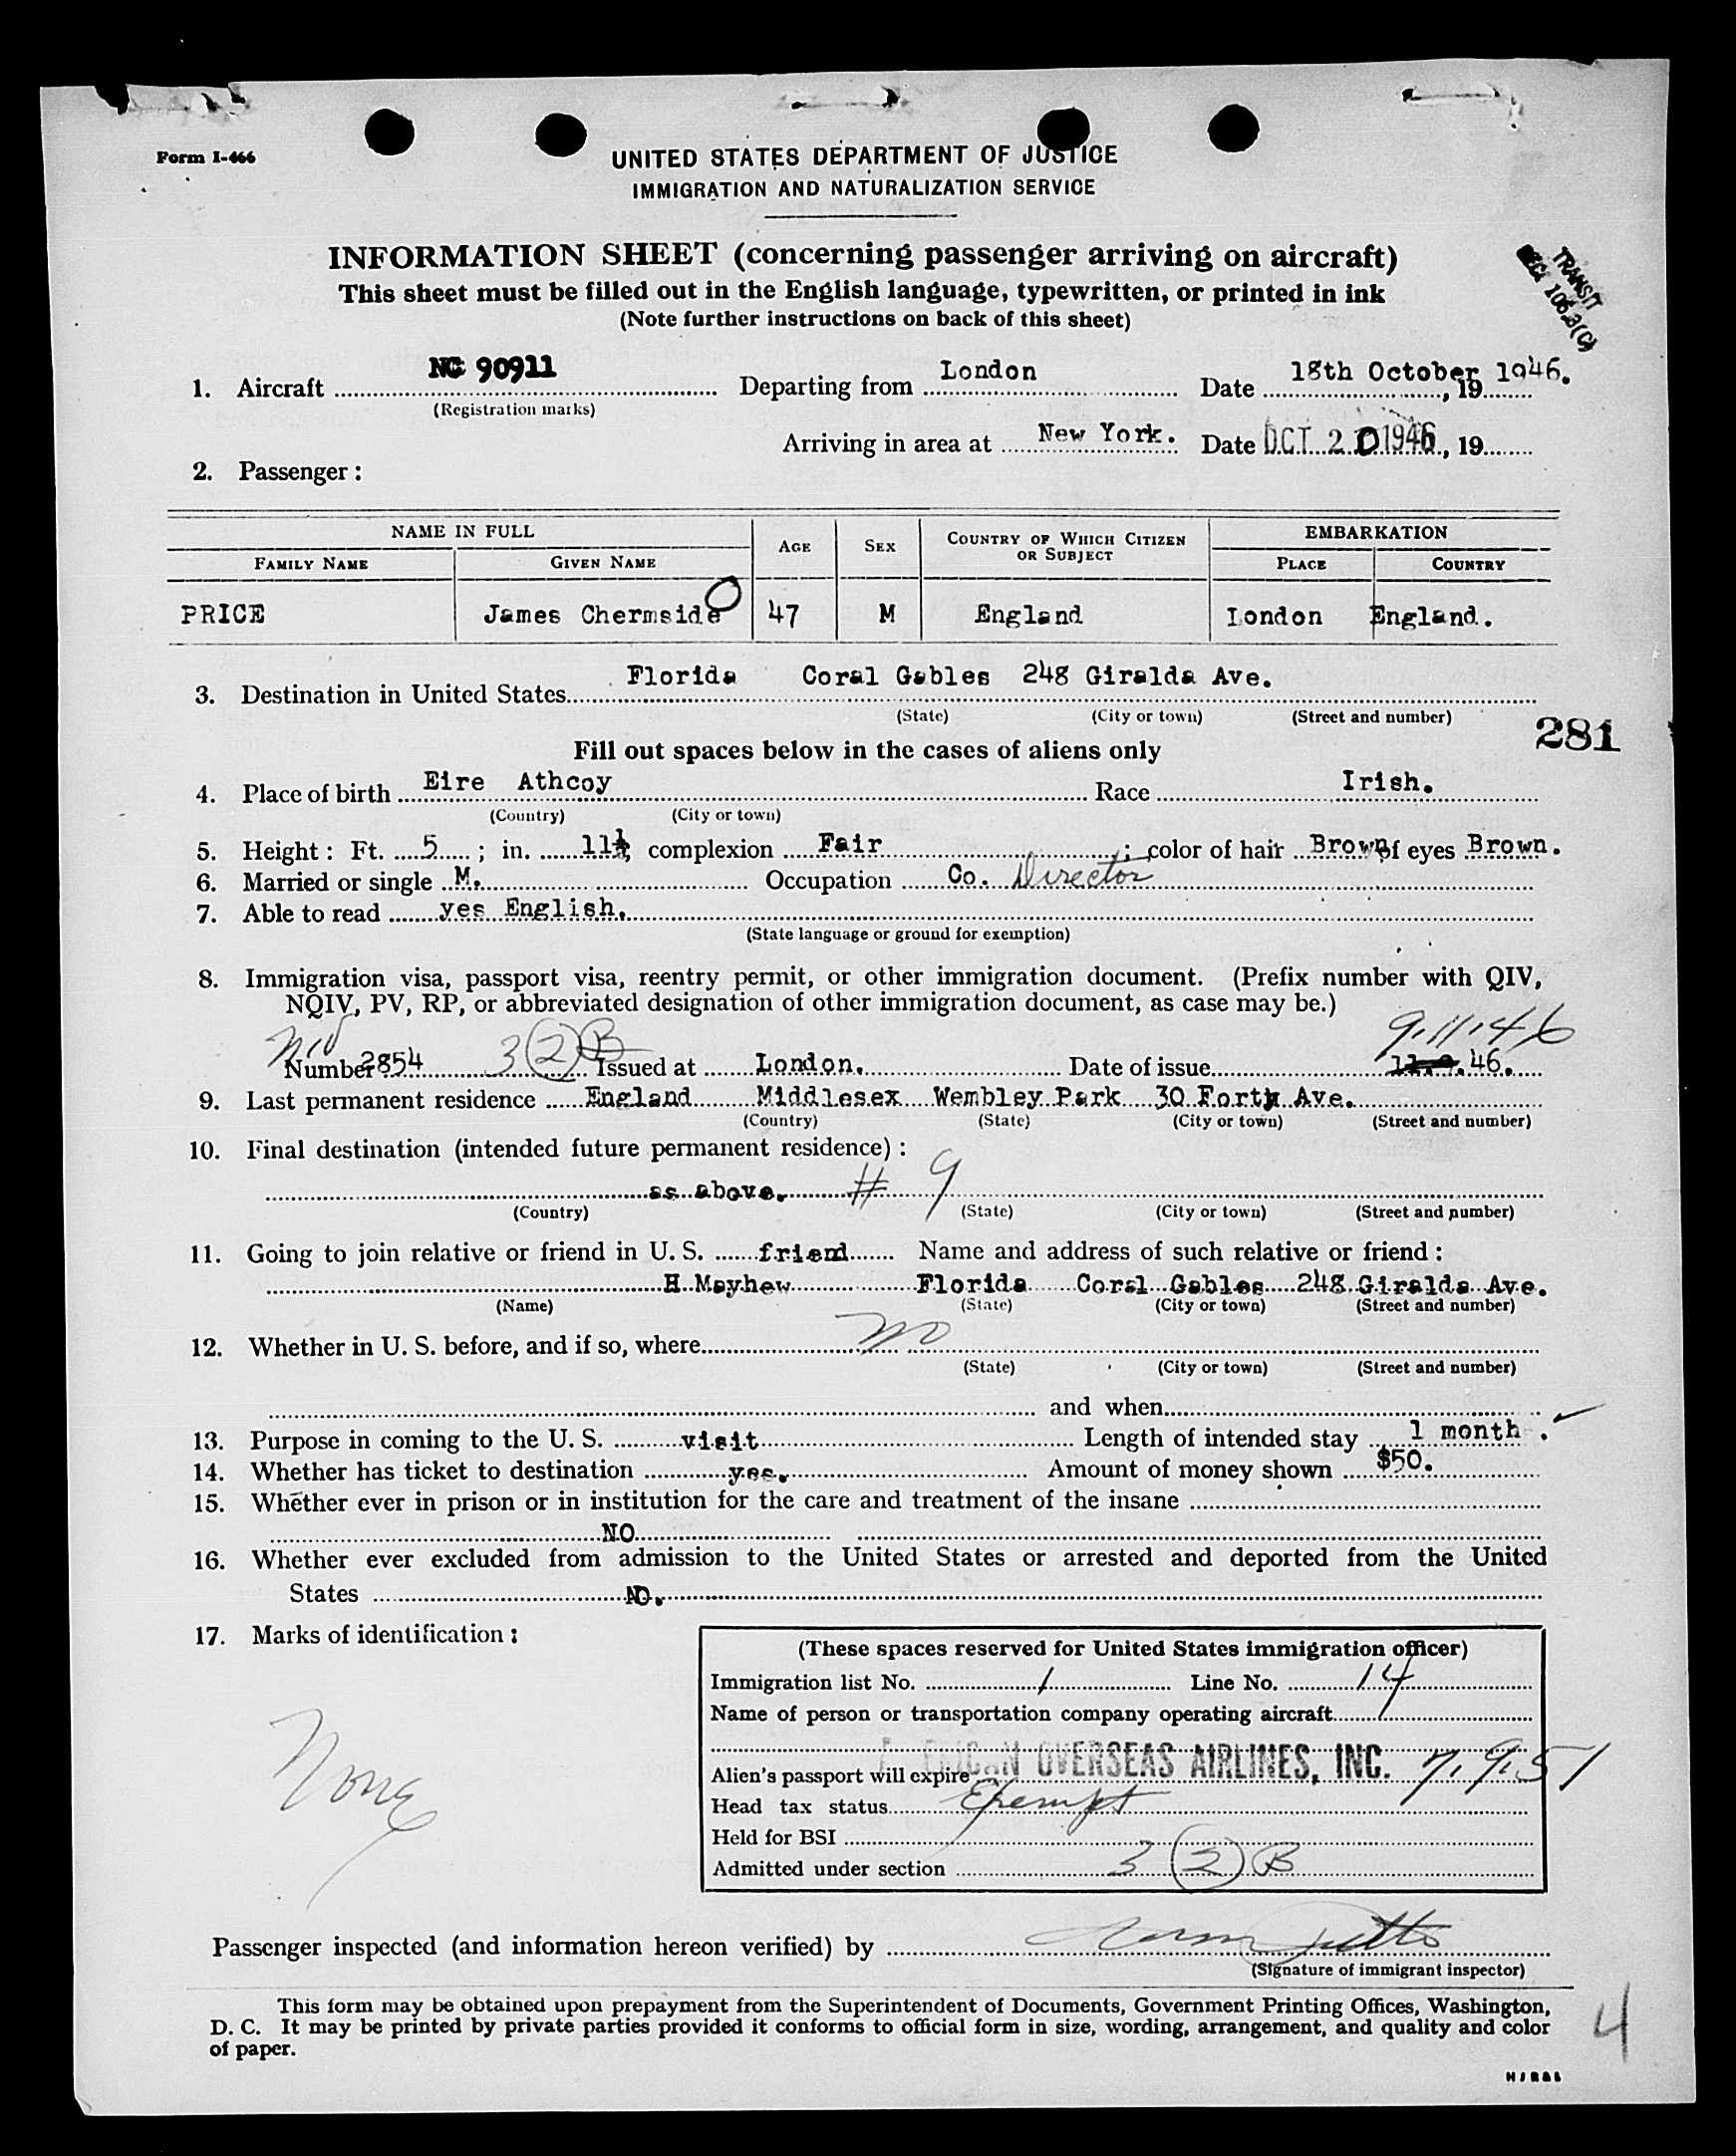 Form I-466
UNITED STATES DEPARTMENT OF JUSTICE
IMMIGRATION AND NATURALIZATION SERVICE
INFORMATION SHEET (concerning passenger arriving on aircraft)
This sheet must be filled out in the English language, typewritten, or printed in ink
(Note further instructions on back of this sheet)
TRANSIT
1. Aircraft NC 90911 Departing from London Date 18th October, 1946. 19
(Registration marks)
Arriving in area at New York. Date OCT 20 1946, 19
2. Passenger:
NAME IN FULL AGE SEX COUNTRY OF WHICH CITIZEN OR SUBJECT EMBARKATION
FAMILY NAME GIVEN NAME PLACE COUNTRY
PRICE James Chermside 47 M England London England.
3. Destination in United States Florida Coral Gables 248 Giralda Ave.
(State) (City or town) (Street and number)
281
Fill out spaces below in the cases of aliens only
4. Place of birth Eire Athcoy Race Irish.
(Country) (City or town)
5. Height: Ft. 5 ; in. 11½, complexion Fair ; color of hair Brown of eyes Brown.
6. Married or single M. Occupation Co. Director
7. Able to read yes English.
(State language or ground for exemption)
8. Immigration visa, passport visa, reentry permit, or other immigration document. (Prefix number with QIV,
NQIV, PV, RP, or abbreviated designation of other immigration document, as case may be.)
9.11.46
Number 2854 3(2)B Issued at London. Date of issue 46.
9. Last permanent residence England Middlesex Wembley Park 30 Forty Ave.
(Country) (State) (City or town) (Street and number)
10. Final destination (intended future permanent residence):
as above. # 9
(Country) (State) (City or town) (Street and number)
11. Going to join relative or friend in U. S. friend Name and address of such relative or friend:
H Mayhew Florida Coral Gables 248 Giralda Ave.
(Name) (State) (City or town) (Street and number)
12. Whether in U. S. before, and if so, where no
(State) (City or town) (Street and number)
and when
13. Purpose in coming to the U. S. visit Length of intended stay 1 month.
14. Whether has ticket to destination yes. Amount of money shown $50.
15. Whether ever in prison or in institution for the care and treatment of the insane
NO
16. Whether ever excluded from admission to the United States or arrested and deported from the United
States NO.
17. Marks of identification:
None
(These spaces reserved for United States immigration officer)
Immigration list No. 1 Line No. 14
Name of person or transportation company operating aircraft
OVERSEAS AIRLINES, INC.
Alien's passport will expire 7.9.51
Head tax status Exempt
Held for BSI
Admitted under section 3(2)B
Passenger inspected (and information hereon verified) by
(Signature of immigrant inspector)
This form may be obtained upon prepayment from the Superintendent of Documents, Government Printing Offices, Washington,
D. C. It may be printed by private parties provided it conforms to official form in size, wording, arrangement, and quality and color
of paper.
4